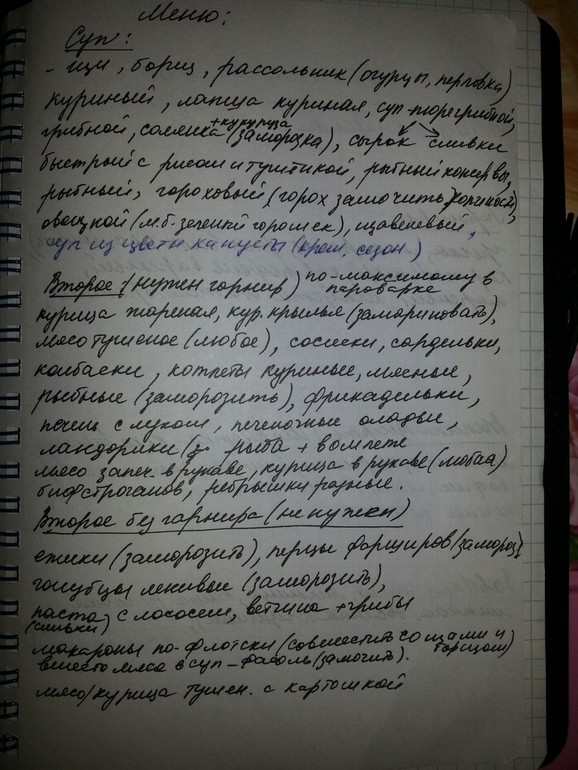 Меню:
Суп:
- щи, борщ, рассольник (огурцы, перловка)
куриный, лапша куриная, суп-пюре грибной,
+кукуруза
грибной, солянка (заморозка), сырок сливки
быстрый с рисом и тушенкой, рыбный консервы,
рыбный, гороховый (горох замочить,
овощной (м.б. зеленый горошек), щавелевый,
суп из цветн капусты (крем, сезон)
Второе: (нужен гарнир) по-максимому в
пароварке
курица жареная, кур. крылья (замариновать),
мясо тушеное (любое), сосиски, сардельки,
колбаски, котлеты куриные, мясные,
рыбные (заморозить), фрикадельки,
печень с луком, печеночные оладьи,
рыба +
мясо запеч. в рукаве, курица в рукаве (любая)
бифстроганов, ребрышки разные.
Второе без гарнира (не нужен)
ежики (заморозить), перцы фарширов (замороз)
голубцы ленивые (заморозить),
паста с лососем, ветчина + грибы
(сливки)
макароны по-флотски (совместить со щами и борщом)
вместо мяса в суп - фасоль (замочить).
мясо/курица тушен. с картошкой